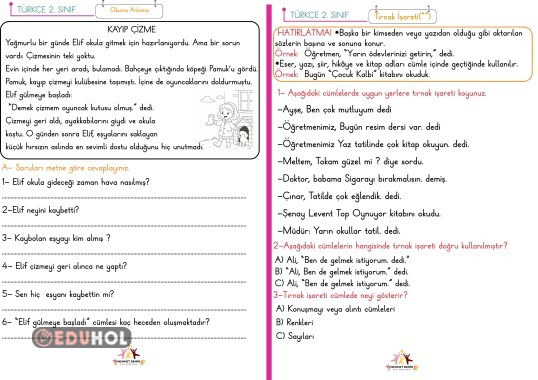 TÜRKÇE 2. SINIF
Okuma Anlama
KAYIP ÇİZME
Yağmurlu bir günde Elif okula gitmek için hazırlanıyordu. Ama bir sorun
vardı. Çizmesinin teki yoktu.
Evin içinde her yeri aradı, bulamadı. Bahçeye çıktığında köpeği Pamuk'u gördü.
Pamuk, kayıp çizmeyi kulübesine taşımıştı. İçine de oyuncaklarını doldurmuştu.
Elif gülmeye başladı:
"Demek çizmem oyuncak kutusu olmuş." dedi.
Çizmeyi geri aldı, ayakkabılarını giydi ve okula
koştu. O günden sonra Elif, eşyalarını saklayan
küçük hırsızın aslında en sevimli dostu olduğunu hiç unutmadı.
A- Soruları metne göre cevaplayınız.
1- Elif okula gideceği zaman hava nasılmış?
2-Elif neyini kaybetti?
3- Kaybolan eşyayı kim almış ?
4- Elif çizmeyi geri alınca ne yaptı?
5- Sen hiç eşyanı kaybettin mi?
6- "Elif gülmeye başladı" cümlesi kaç heceden oluşmaktadır?
EDUHOL
MEHMET DEMİR
TÜRKÇE 2. SINIF
Tırnak İşareti(" ")
HATIRLATMA! •Başka bir kimseden veya yazıdan olduğu gibi aktarılan
sözlerin başına ve sonuna konur.
Örnek: Öğretmen, "Yarın ödevlerinizi getirin," dedi.
•Eser, yazı, şiir, hikâye ve kitap adları cümle içinde geçtiğinde kullanılır.
Örnek: Bugün "Çocuk Kalbi" kitabını okuduk.
1- Aşağıdaki cümlelerde uygun yerlere tırnak işareti koyunuz.
-Ayşe, Ben çok mutluyum dedi
-Öğretmenimiz, Bugün resim dersi var. dedi
-Öğretmenimiz Yaz tatilinde çok kitap okuyun. dedi.
-Meltem, Tokam güzel mi ? diye sordu.
-Doktor, babama Sigarayı bırakmalısın. demiş.
-Çınar, Tatilde çok eğlendik. dedi.
-Şenay Levent Top Oynuyor kitabını okudu.
-Müdür: Yarın okullar tatil. dedi.
2-Aşağıdaki cümlelerin hangisinde tırnak işareti doğru kullanılmıştır?
A) Ali, "Ben de gelmek istiyorum. dedi."
B) "Ali, Ben de gelmek istiyorum." dedi.
C) Ali, "Ben de gelmek istiyorum." dedi.
3-Tırnak işareti cümlede neyi gösterir?
A) Konuşmayı veya alıntı cümleleri
B) Renkleri
C) Sayıları
MEHMET DEMİR